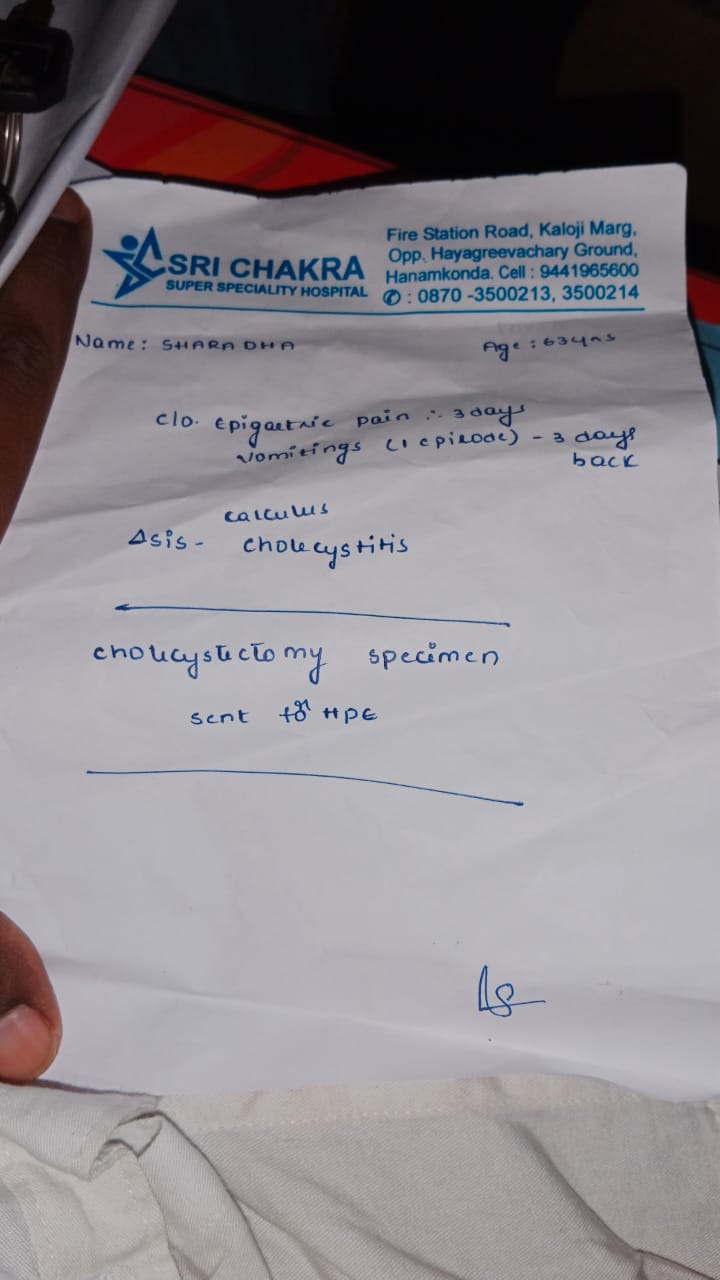 SRI CHAKRA
SUPER SPECIALITY HOSPITAL
Fire Station Road, Kaloji Marg,
Opp. Hayagreevachary Ground,
Hanamkonda. Cell : 9441965600
✆ : 0870 -3500213, 3500214
Name: SHARADHA Age : 63yrs
c/o. Epigastric pain ∴ 3 days
Vomitings (1 episode) - 3 days
back
calculus
Δsis - cholecystitis
cholecystectomy specimen
sent for HPE